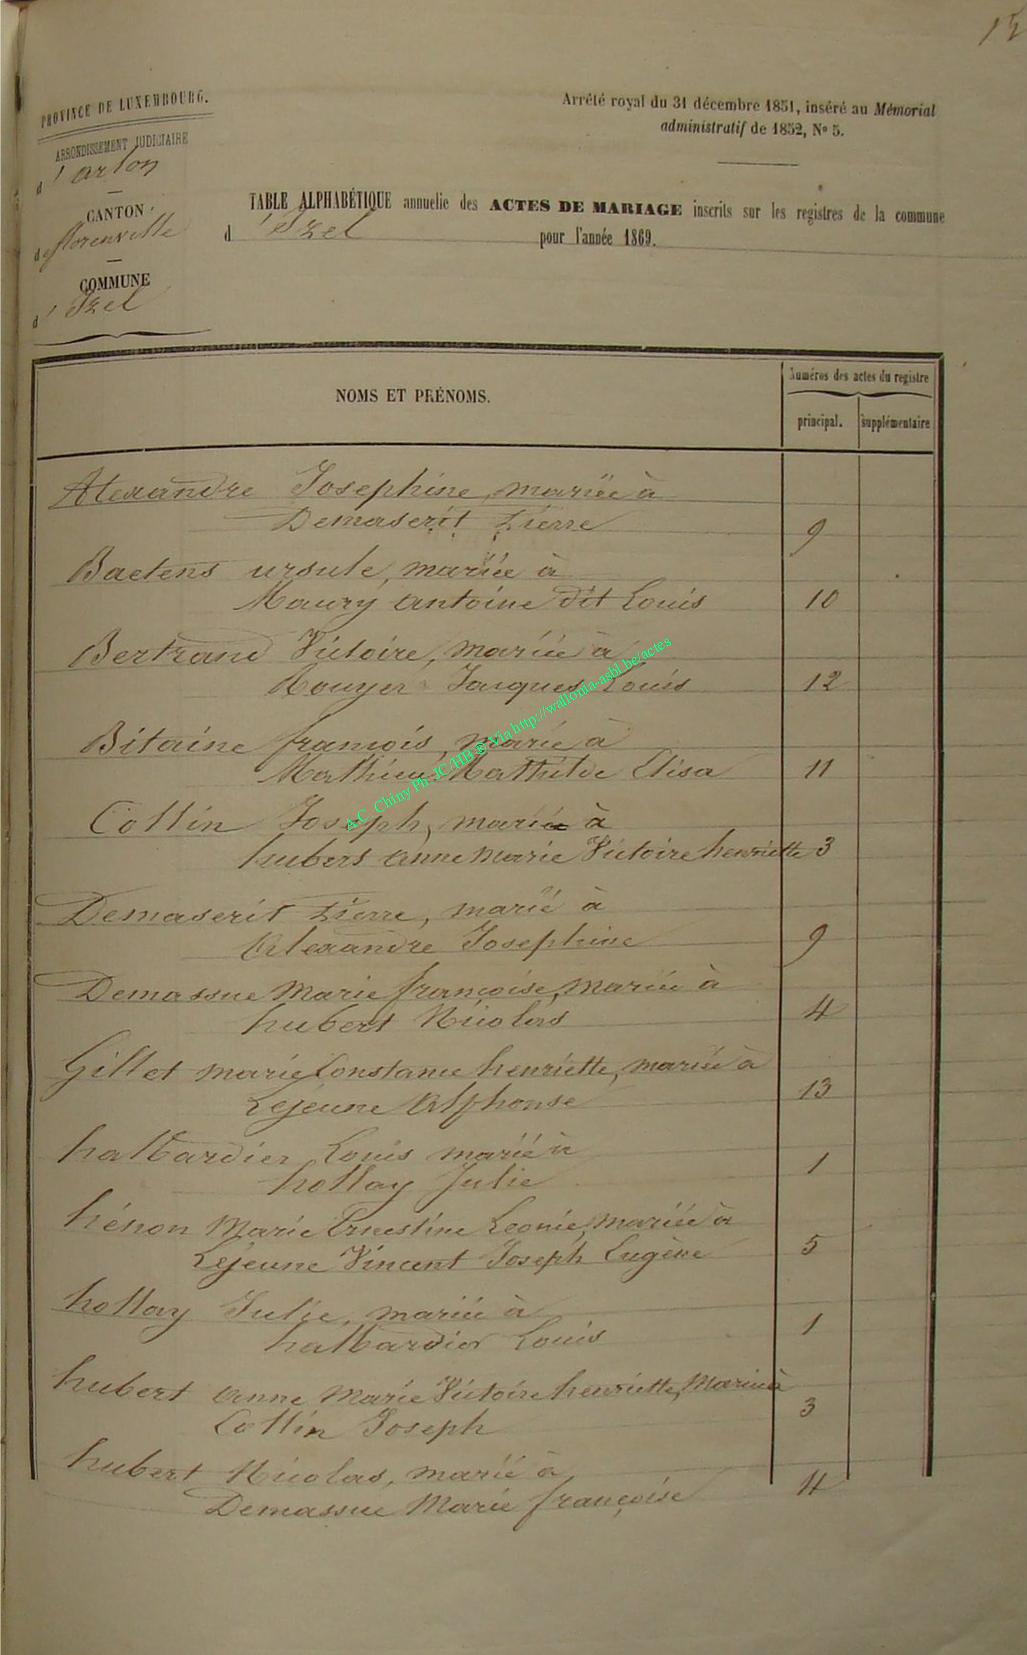 15
PROVINCE DE LUXEMBOURG.
ARRONDISSEMENT JUDICIAIRE
d'arlon
CANTON
de florenville
COMMUNE
d'Izel
Arrêté royal du 31 décembre 1851, inséré au Mémorial
administratif de 1852, No 5.
TABLE ALPHABÉTIQUE annuelle des ACTES DE MARIAGE inscrits sur les registres de la commune
d'Izel pour l'année 1869.
NOMS ET PRÉNOMS.
Numéros des actes du registre
principal. supplémentaire
Alexandre Josephine, mariée à
Demaserit Pierre 9
Baetens ursule, mariée à
Maury antoine dit Louis 10
Bertrand Victoire, mariée à
Rouyer Jacques Louis 12
Bitaine françois, marié à
Mathieu Mathilde Elisa 11
Collin Joseph, marié à
hubert anne marie Victoire henriette 3
Demaserit Pierre, marié à
Alexandre Josephine 9
Demassue Marie françoise, mariée à
hubert Nicolas 4
Gillet marie Constance henriette, mariée à
Lejeune Alphonse 13
halbardier Louis marié à
hollay Julie 1
hénon Marie Ernestine Leonie, mariée à
Lejeune Vincent Joseph Eugène 5
hollay Julie, mariée à
halbardier Louis 1
hubert anne Marie Victoire henriette, Mariée à
Collin Joseph 3
hubert Nicolas, marié à
Demassue Marie françoise 4
A.C. Chiny Ph. JC/HB © Via http://wallonia-asbl.be/actes